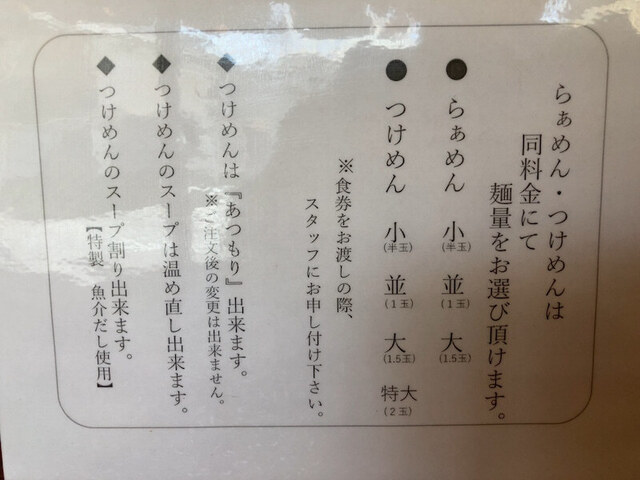 らぁめん・つけめんは
同料金にて
麺量をお選び頂けます。
● らぁめん 小(半玉) 並(1玉) 大(1.5玉)
● つけめん 小(半玉) 並(1玉) 大(1.5玉) 特大(2玉)
※食券をお渡しの際、
スタッフにお申し付け下さい。
◆ つけめんは『あつもり』出来ます。
※ご注文後の変更は出来ません。
◆ つけめんのスープは温め直し出来ます。
◆ つけめんのスープ割り出来ます。
【特製 魚介だし使用】